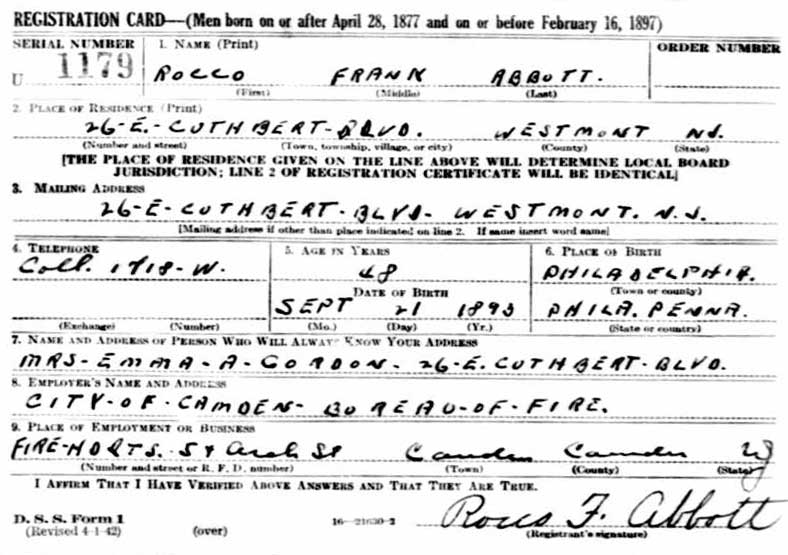 REGISTRATION CARD—(Men born on or after April 28, 1877 and on or before February 16, 1897)
SERIAL NUMBER 1. NAME (Print) ORDER NUMBER
U 1179 ROCCO FRANK ABBOTT.
(First) (Middle) (Last)
2. PLACE OF RESIDENCE (Print)
26-E.-CUTHBERT-BLVD. WESTMONT NJ.
(Number and street) (Town, township, village, or city) (County) (State)
[THE PLACE OF RESIDENCE GIVEN ON THE LINE ABOVE WILL DETERMINE LOCAL BOARD
JURISDICTION; LINE 2 OF REGISTRATION CERTIFICATE WILL BE IDENTICAL]
3. MAILING ADDRESS
26-E-CUTHBERT-BLVD- WESTMONT. N.J.
[Mailing address if other than place indicated on line 2. If same insert word same]
4. TELEPHONE 5. AGE IN YEARS 6. PLACE OF BIRTH
Coll. 1718-W. 48 PHILADELPHIA.
DATE OF BIRTH (Town or county)
SEPT 21 1893 PHILA. PENNA.
(Exchange) (Number) (Mo.) (Day) (Yr.) (State or country)
7. NAME AND ADDRESS OF PERSON WHO WILL ALWAYS KNOW YOUR ADDRESS
MRS-EMMA-A-GORDON. 26-E. CUTHBERT-BLVD.
8. EMPLOYER'S NAME AND ADDRESS
CITY-OF-CAMDEN- BUREAU-OF-FIRE.
9. PLACE OF EMPLOYMENT OR BUSINESS
FIRE-HDRTS. 5th Arch St Camden Camden NJ
(Number and street or R. F. D. number) (Town) (County) (State)
I AFFIRM THAT I HAVE VERIFIED ABOVE ANSWERS AND THAT THEY ARE TRUE.
D. S. S. Form 1
(Revised 4-1-42) (over) 16—21630-2 Rocco F. Abbott
(Registrant's signature)